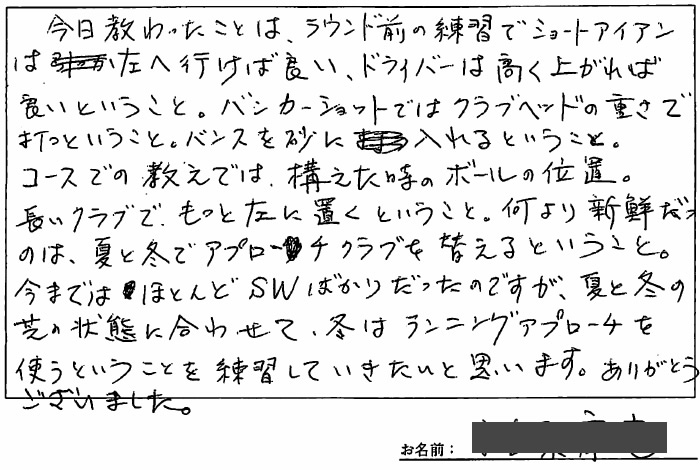 今日教わったことは、ラウンド前の練習でショートアイアン
は左へ行けば良い、ドライバーは高く上がれば
良いということ。バンカーショットではクラブヘッドの重さで
打つということ。バンスを砂に入れるということ。
コースでの教えでは、構えた時のボールの位置。
長いクラブで、もっと左に置くということ。何より新鮮だった
のは、夏と冬でアプローチクラブを替えるということ。
今まではほとんどSWばかりだったのですが、夏と冬の
芝の状態に合わせて、冬はランニングアプローチを
使うということを練習していきたいと思います。ありがとう
ございました。
お名前：